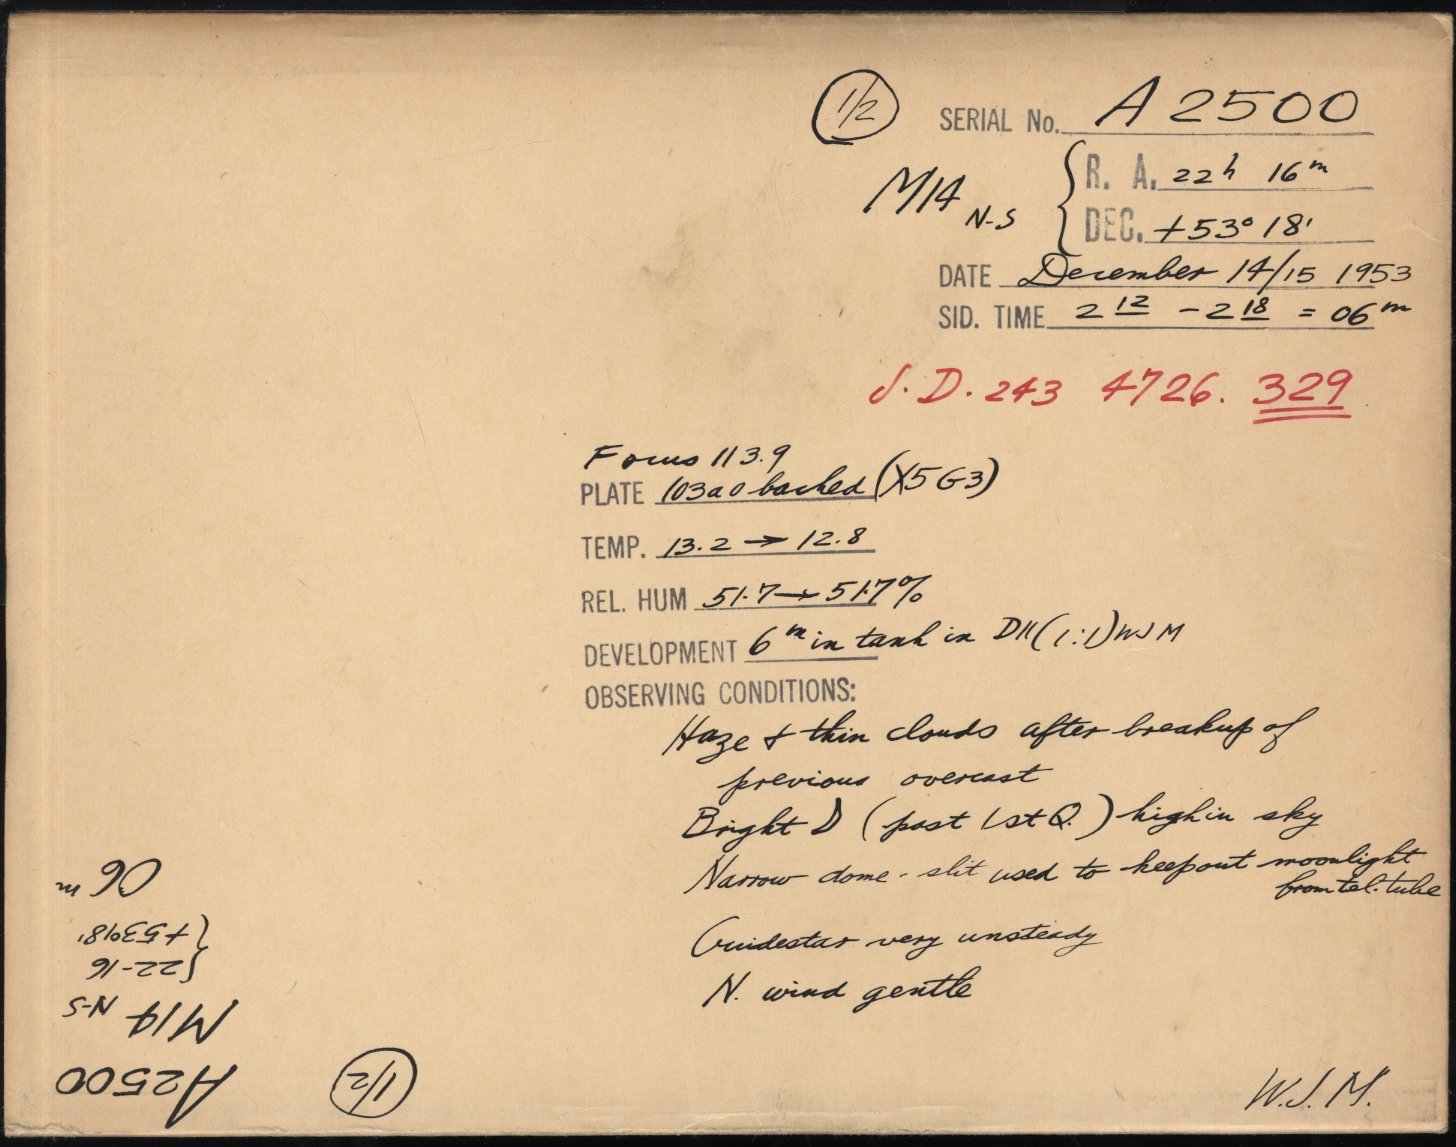 1/2
SERIAL No. A2500
M14 N-S { R. A. 22h 16m
DEC. +53° 18'
DATE December 14/15 1953
SID. TIME 2 12 - 2 18 = 06m
J.D. 243 4726. 329
Focus 113.9
PLATE 103a0 backed (X5G3)
TEMP. 13.2 → 12.8
REL. HUM 51.7 → 51.7%
DEVELOPMENT 6m in tank in D11 (1:1) WJM
OBSERVING CONDITIONS:
Haze & thin clouds after breakup of
previous overcast
Bright D (past 1st Q.) high in sky
Narrow dome-slit used to keep out moonlight
from tel. tube
Guidestar very unsteady
N. wind gentle
W.J.M.
A2500 1/2
M14 N-S
{22-16
{+53°18'
06m